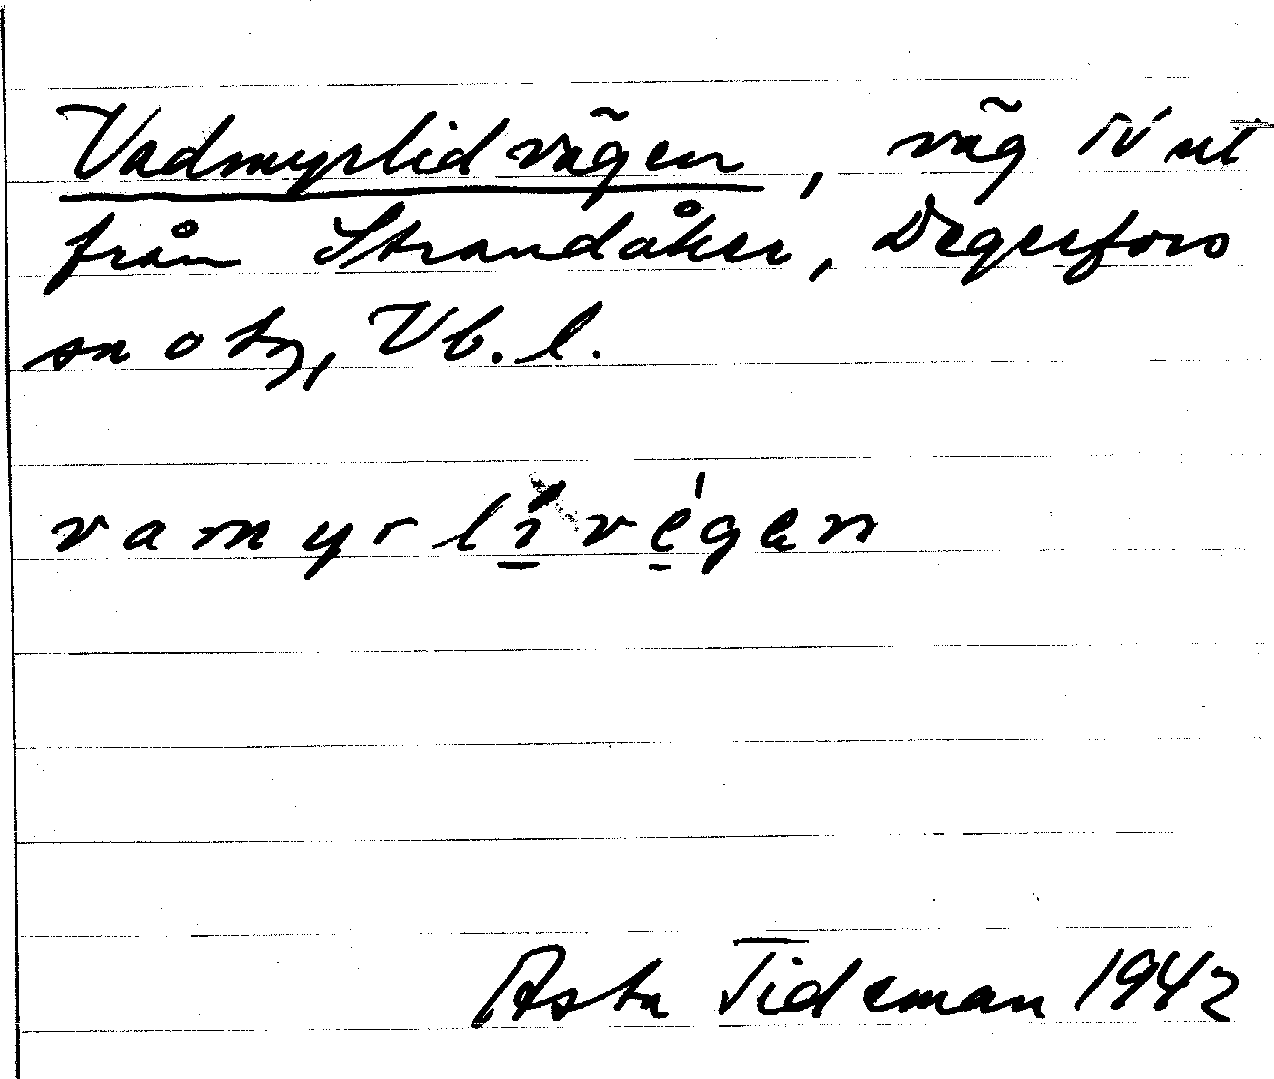 Vadmyrlidvägen, väg N ut
från Strandåker, Degerfors
sn o tg, Vb. l.
vamyrlivégen
Asta Tideman 1942